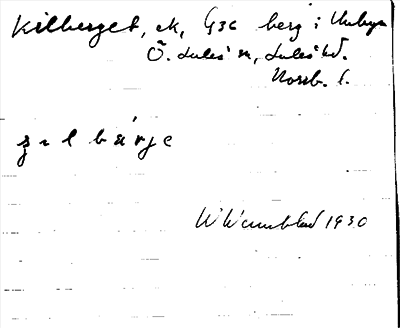 Kilberget, ek, G36 berg i Unbyn
Ö. Luleå sn, Luleå td.
Norrb. l.
ʒ ı l b á r j e
W Wennblad 1930